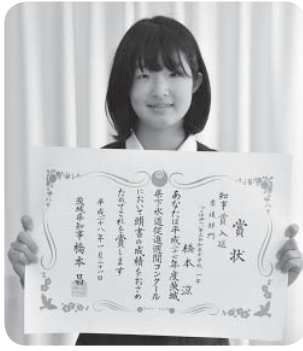 賞状
知事賞入選
書道部門
橋本涼
あなたは平成二十七年度茨城
県下水道促進週間コンクール
において頭書の成績をおさめ
たのでこれを賞します
平成二十八年一月二十一日
茨城県知事 橋本昌